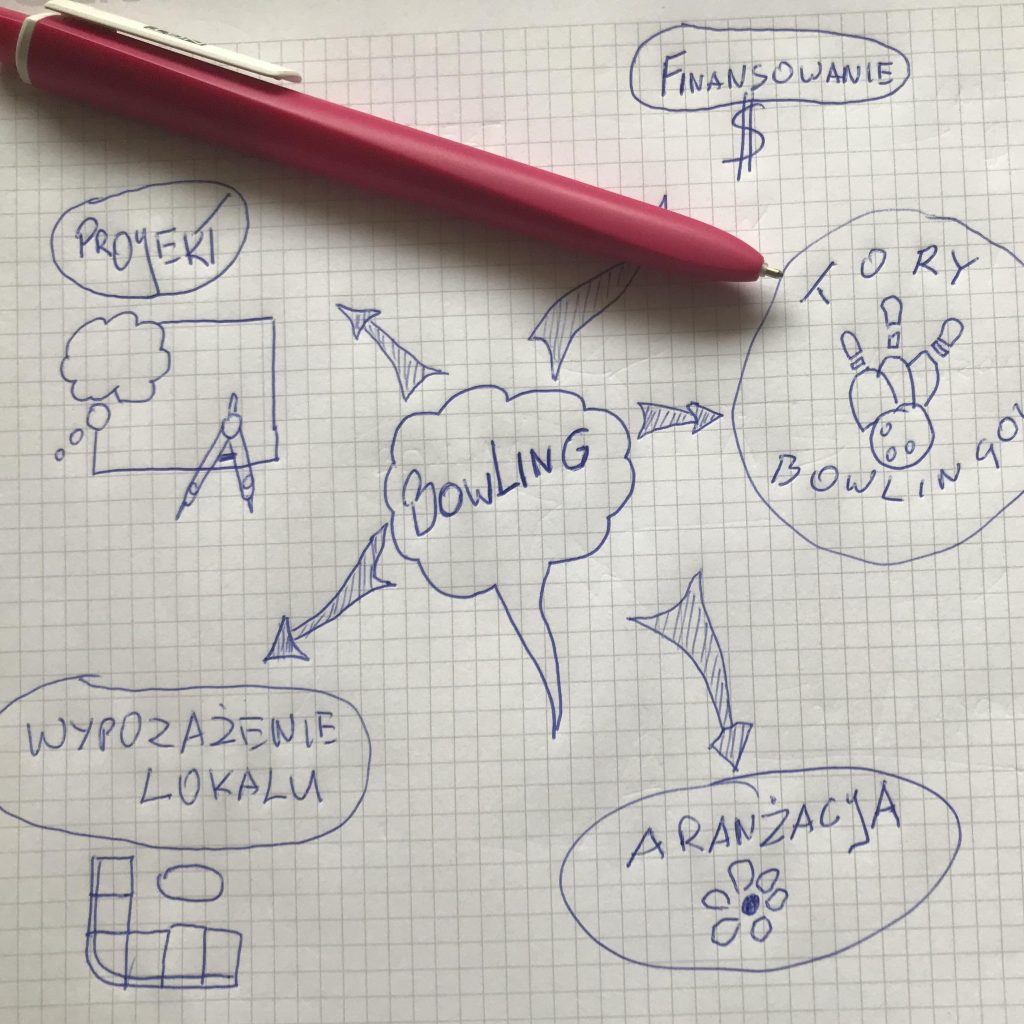 FINANSOWANIE
$
PROJEKT
TORY
BOWLINGO
BOWLING
WYPOZAŻENIE
LOKALU
ARANŻACJA